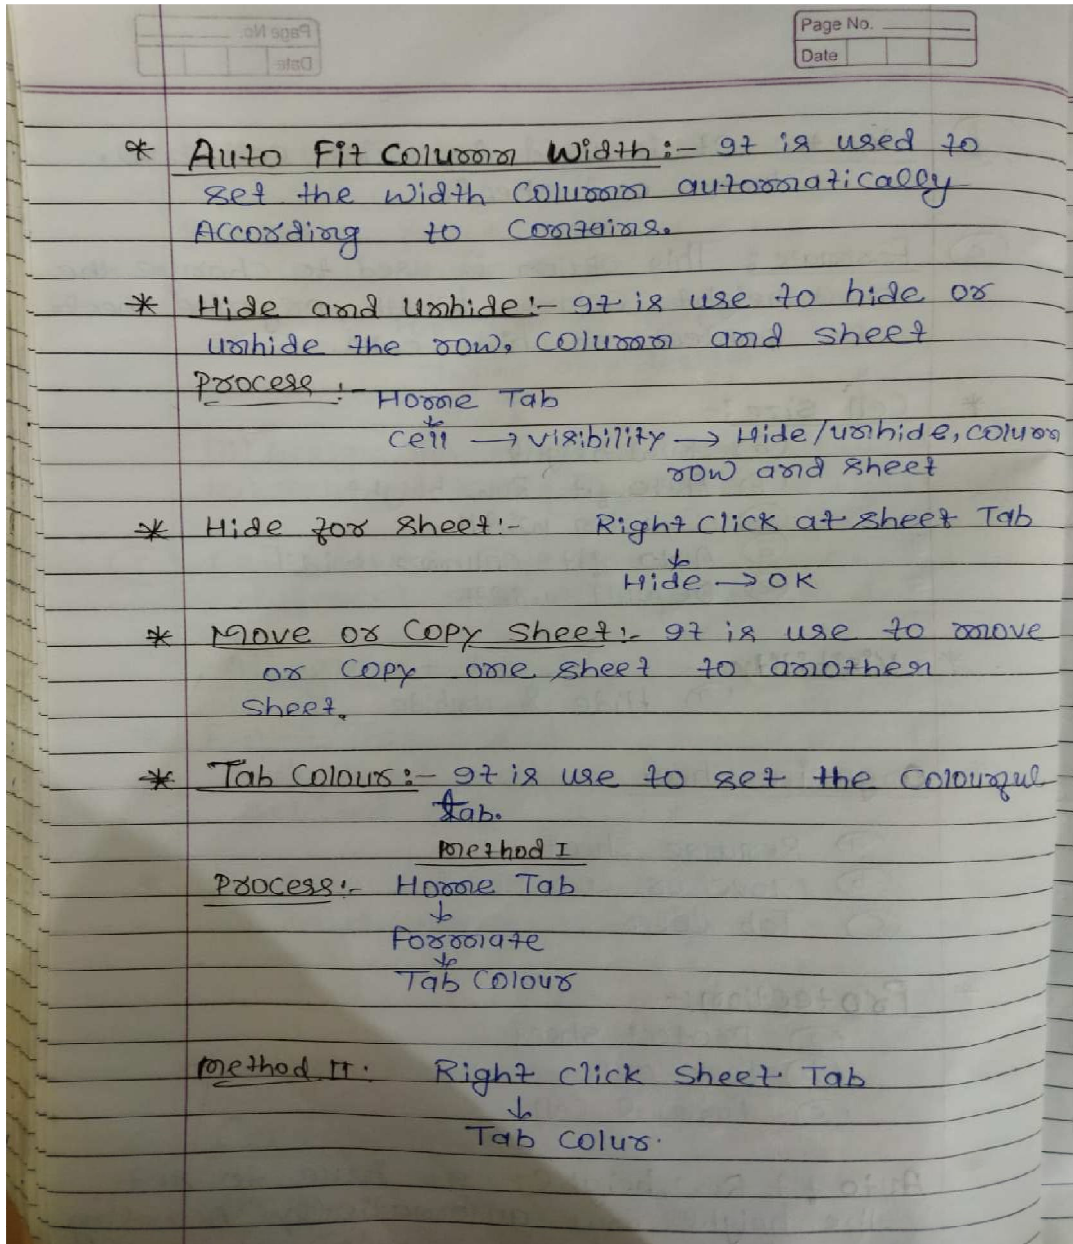 Page No.
Date
* Auto Fit Column Width :- It is used to
set the width column automatically
According to Contains.
* Hide and Unhide :- It is use to hide or
unhide the row, column and sheet
Process :- Home Tab
↓
Cell → visibility → Hide/unhide, colum
row and sheet
* Hide for sheet :- Right click at sheet Tab
↓
Hide → OK
* Move or Copy Sheet :- It is use to move
or copy one sheet to another
sheet.
* Tab Colour :- It is use to set the Colourful
tab.
Method I
Process :- Home Tab
↓
Formate
↓
Tab Colour
Method II. Right click Sheet Tab
↓
Tab Colur.